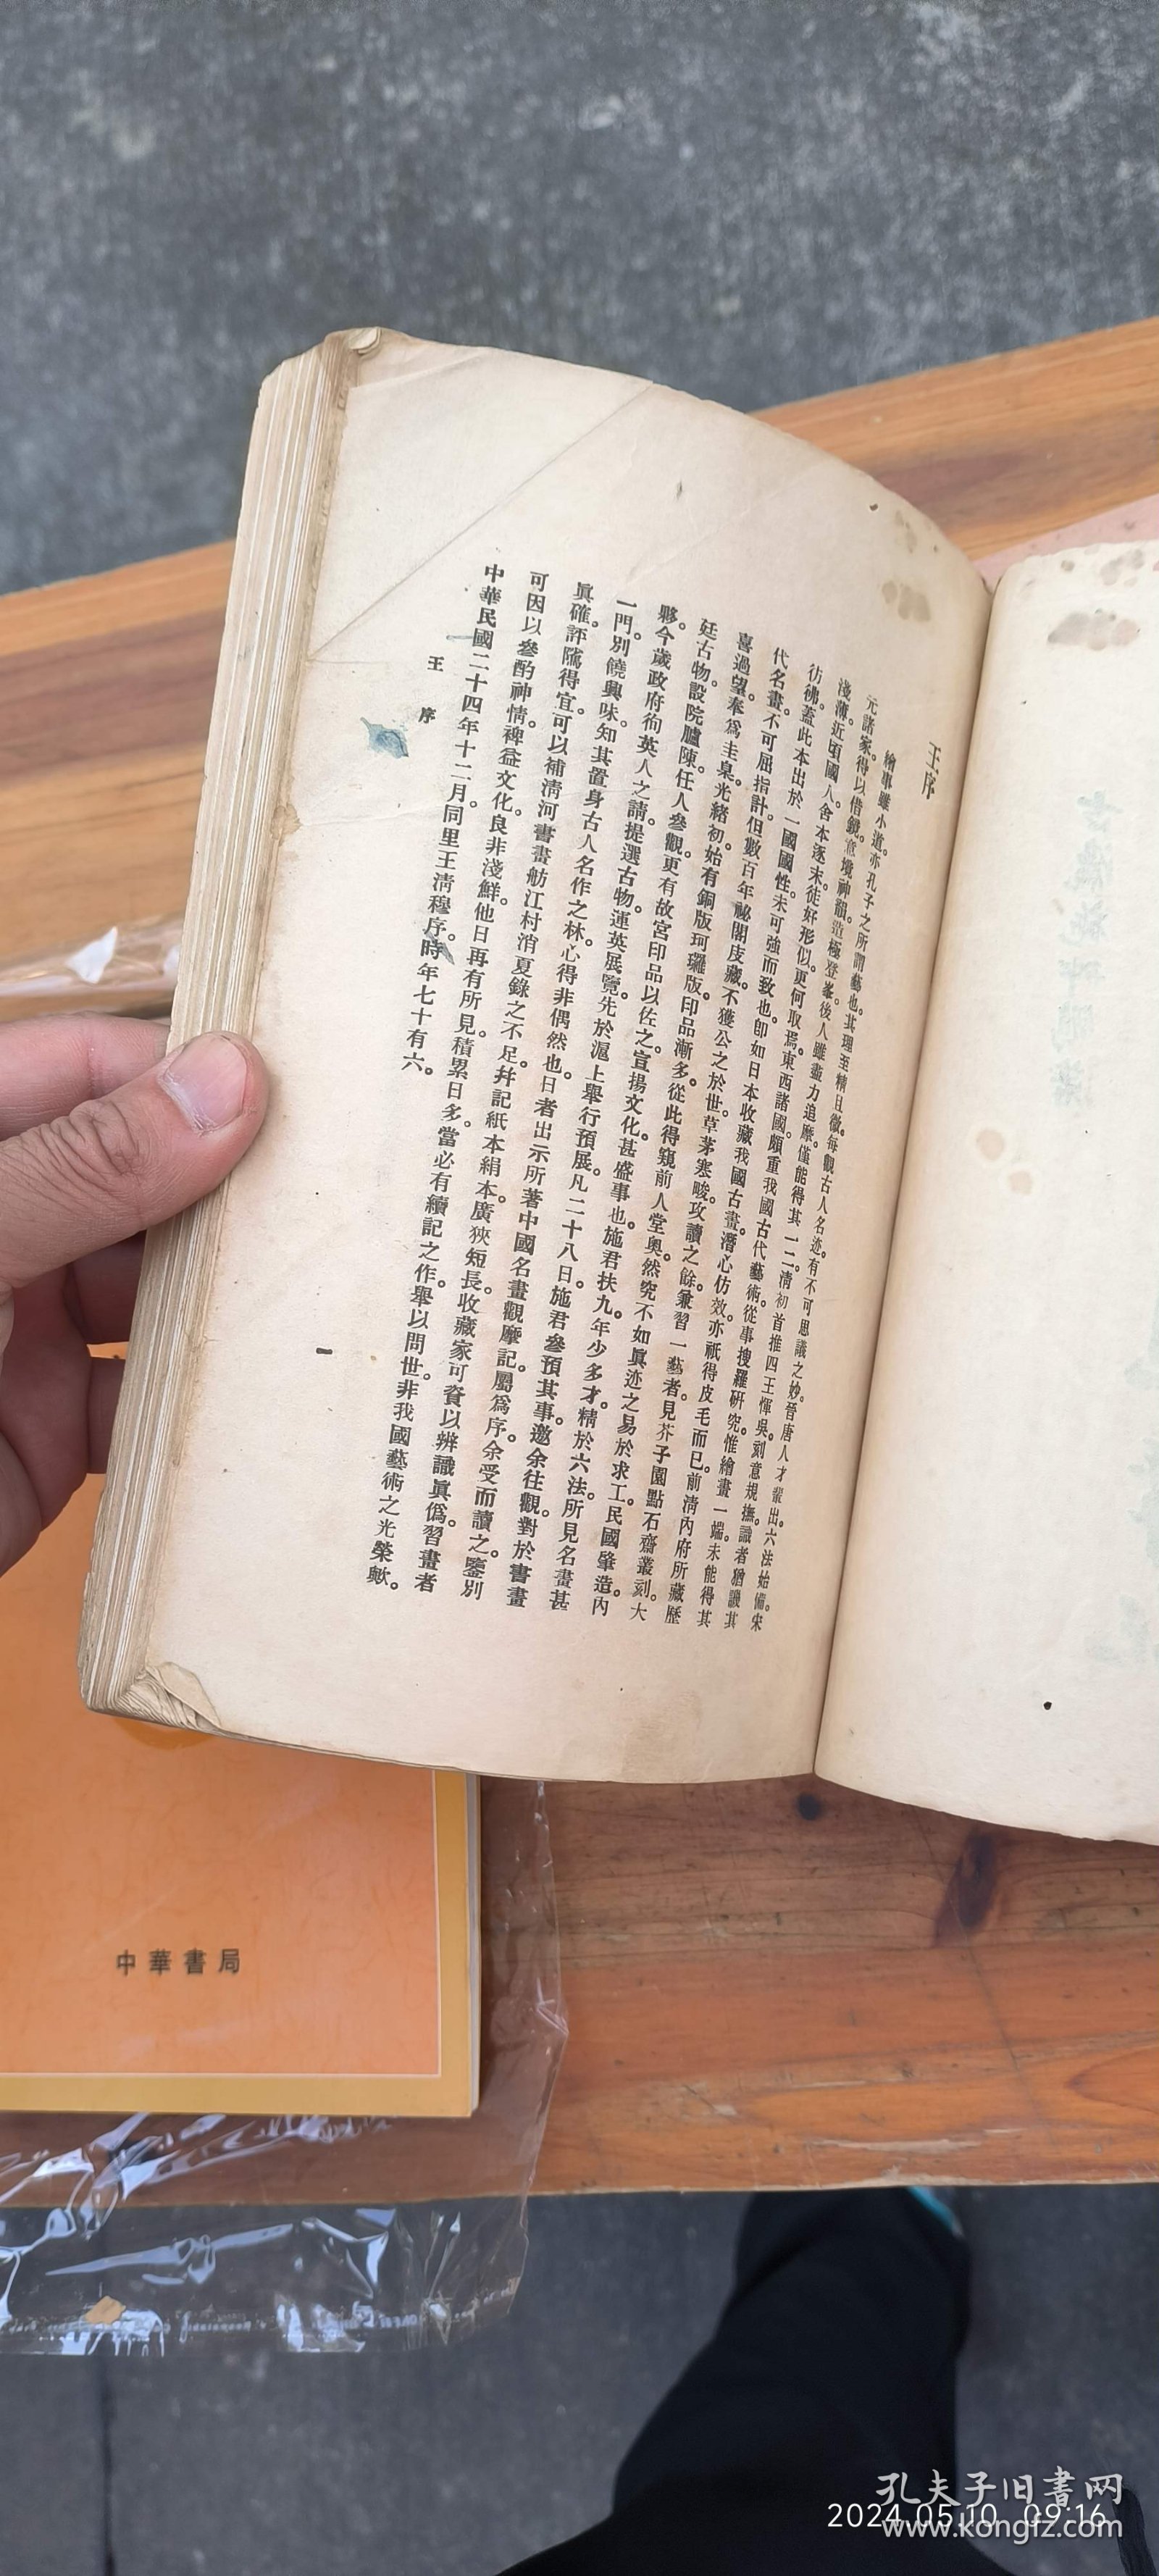 王序
繪事雖小道。亦孔子之所謂藝也。其理至精且微。每觀古人名迹。有不可思議之妙。晉唐人才輩出。六法始備。宋
元諸家。得以借鏡。意境神韻。造極登峯。後人雖盡力追摩。僅能得其一二。清初首推四王惲吳。刻意規撫。識者猶譏其
淺薄。近頃國人。舍本逐末。徒好形似。更何取焉。東西諸國。頗重我國古代藝術。從事搜羅研究。惟繪畫一端。未能得其
彷彿。蓋此本出於一國國性。未可強而致也。卽如日本收藏我國古畫。潛心仿效。亦祇得皮毛而已。前淸內府所藏歷
代名畫。不可屈指計。但數百年祕閣庋藏。不獲公之於世。草茅寒畯。攻讀之餘。兼習一藝者。見芥子園點石齋叢刻。大
喜過望。奉爲圭臬。光緒初。始有銅版珂瓃版。印品漸多。從此得窺前人堂奧。然究不如眞迹之易於求工。民國肇造。內
廷古物。設院臚陳。任人參觀。更有故宮印品以佐之。宣揚文化。甚盛事也。施君扶九。年少多才。精於六法。所見名畫甚
夥。今歲政府徇英人之請。提選古物。運英展覽。先於滬上舉行預展。凡二十八日。施君參預其事。邀余往觀。對於書畫
一門。別饒興味。知其置身古人名作之林。心得非偶然也。日者出示所著中國名畫觀摩記。屬爲序。余受而讀之。鑒別
眞確。評隲得宜。可以補淸河書畫舫江村消夏錄之不足。幷記紙本絹本。廣狹短長。收藏家可資以辨識眞僞。習畫者
可因以參酌神情。裨益文化。良非淺鮮。他日再有所見。積累日多。當必有續記之作。舉以問世。非我國藝術之光榮歟。
中華民國二十四年十二月。同里王淸穆序。時年七十有六。
王 序
一
中華書局
孔夫子旧書网
2024.05.10 09:16
www.kongfz.com